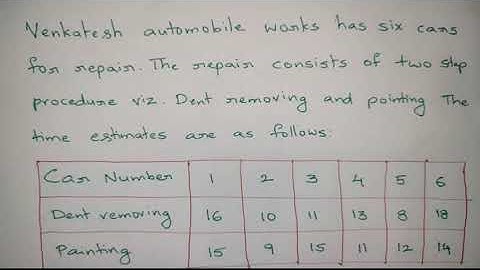 Venkatesh automobile works has six cars
for repair. The repair consists of two step
procedure viz. Dent removing and pointing The
time estimates are as follows:
Car Number 1 2 3 4 5 6
Dent removing 16 10 11 13 8 18
Painting 15 9 15 11 12 14